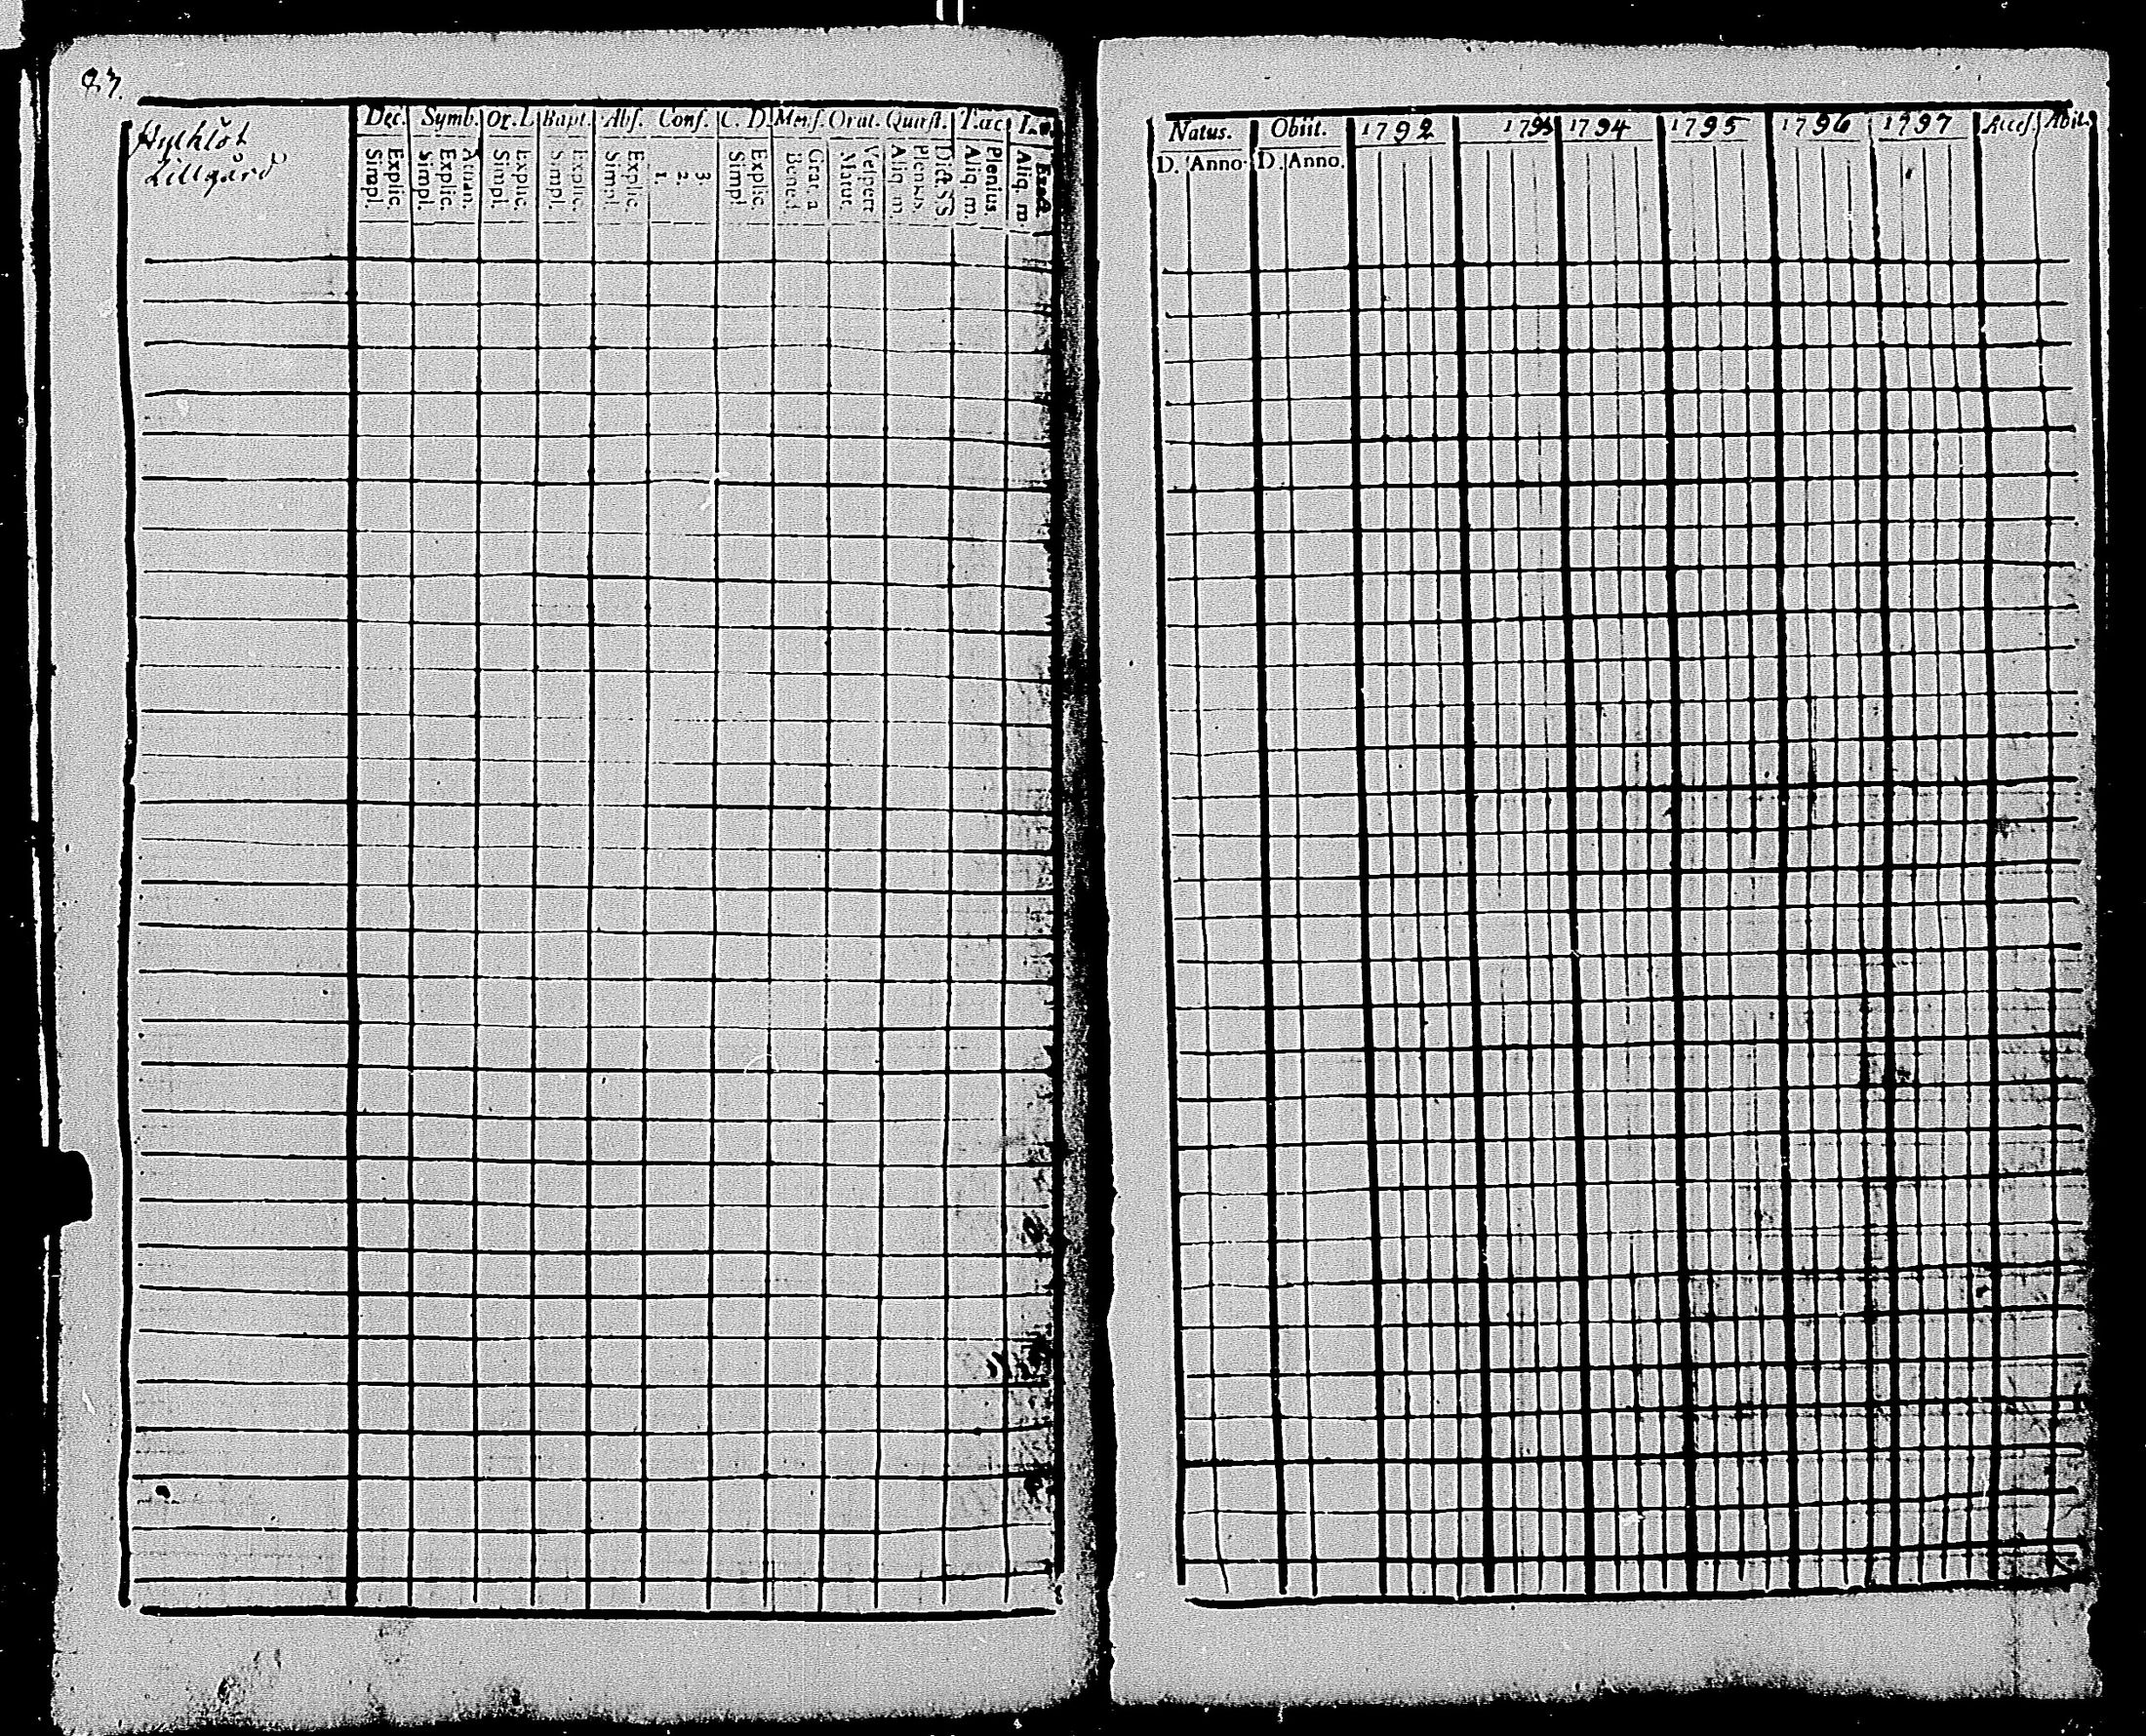 87.
Lillgård
Dec. Symb. Or. D. Bapt. Abs. Conf. C. D. Mens. Orat. Quæst. T. œc.
Explic. Simpl. Athan. Explic. Simpl. Explic. Simpl. Explic. Simpl. Explic. Simpl. 3. 2. 1. Explic. Simpl. Grat. a. Bened. Vespert. Matut. Dict. S. S. Plenius. Aliq. m. Plenius. Aliq. m. Exact. Aliq. m.
Natus. Obiit. 1792 1793 1794 1795 1796 1797 Access. Abit.
D. Anno. D. Anno.